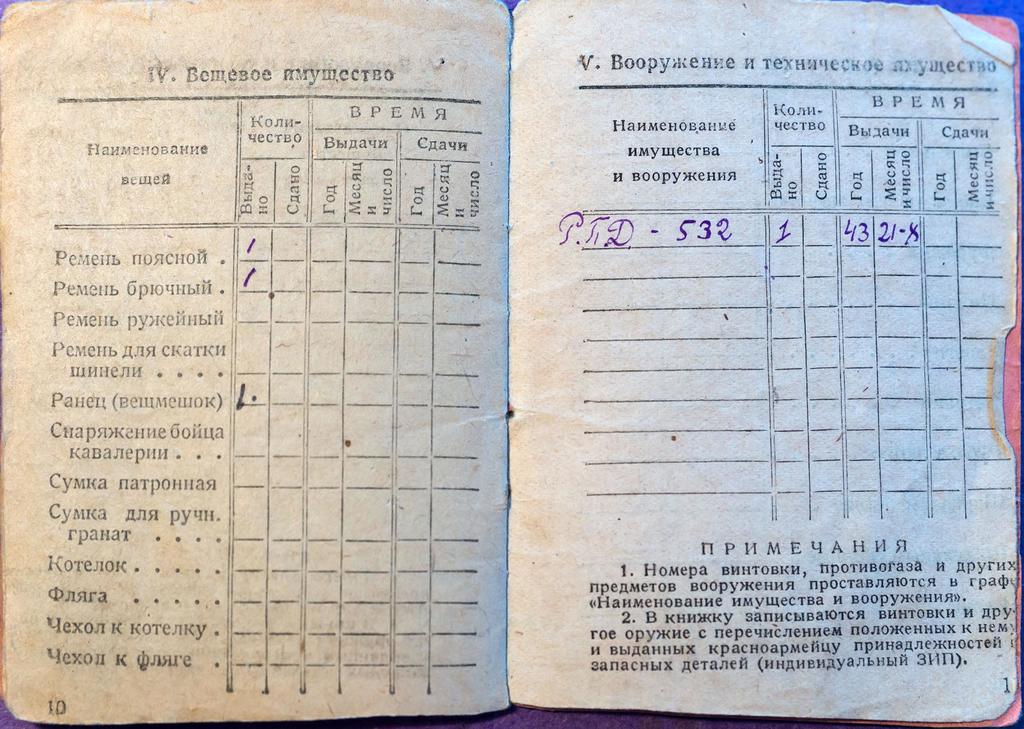 IV. Вещевое имущество
Наименование вещей
Коли-
чество
ВРЕМЯ
Выдачи
Сдачи
Выда-
но
Сдано
Год
Месяц
и
число
Год
Месяц
и
число
Ремень поясной . 1
Ремень брючный . 1
Ремень ружейный
Ремень для скатки
шинели . . . .
Ранец (вещмешок) 1.
Снаряжение бойца
кавалерии . . .
Сумка патронная
Сумка для ручн.
гранат . . . .
Котелок . . . . .
Фляга . . . . .
Чехол к котелку .
Чехол к фляге .
10
V. Вооружение и техническое имущество
Наименование
имущества
и вооружения
Коли-
чество
ВРЕМЯ
Выдачи
Сдачи
Выда-
но
Сдано
Год
Месяц
и число
Год
Месяц
и число
Р.П.Д - 532 1 43 21-X
ПРИМЕЧАНИЯ
1. Номера винтовки, противогаза и других
предметов вооружения проставляются в граф
«Наименование имущества и вооружения».
2. В книжку записываются винтовки и дру-
гое оружие с перечислением положенных к нему
и выданных красноармейцу принадлежностей и
запасных деталей (индивидуальный ЗИП).
1